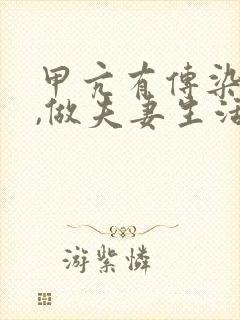 甲亢有傳染
,做夫妻生活
游紫憐